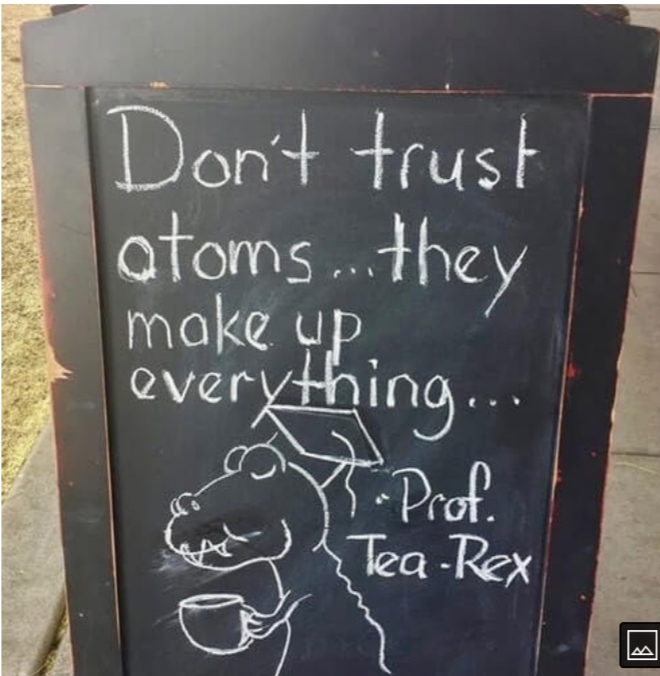 Don't trust
atoms...they
make up
everything...
-Prof.
Tea-Rex